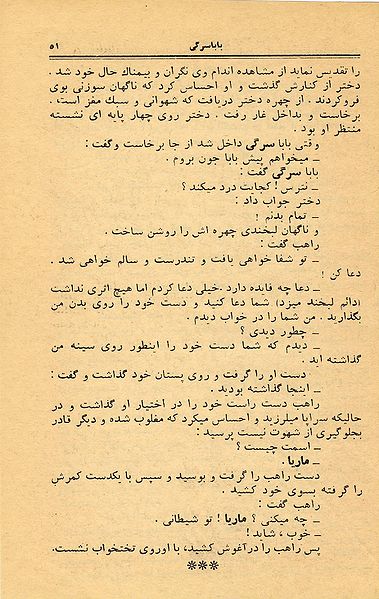 باباسرگی ۵۱
را تقدیس نماید از مشاهده اندام وی نگران و بیمناك حال خود شد .
دختر از کنارش گذشت و او احساس کرد که ناگهان سوزنی بوی
فروکردند . از چهره دختر دریافت که شهوانی و سبك مغز است .
برخاست و بداخل غار رفت . دختر روی چهار پایه ای نشسته
منتظر او بود .
وقتی بابا سرگی داخل شد از جا برخاست وگفت :
ــ میخواهم پیش بابا جون بروم .
بابا سرگی گفت :
ــ نترس ! کجایت درد میکند ؟
دختر جواب داد :
ــ تمام بدنم !
و ناگهان لبخندی چهره اش را روشن ساخت .
راهب گفت :
ــ تو شفا خواهی یافت و تندرست و سالم خواهی شد .
دعا کن !
ــ دعا چه فایده دارد .خیلی دعا کردم اما هیچ اثری نداشت
(دائم لبخند میزد) شما دعا کنید و دست خود را روی بدن من
بگذارید . من شما را در خواب دیدم .
ــ چطور دیدی ؟
ــ دیدم که شما دست خود را اینطور روی سینه من
گذاشته اید .
دست او را گرفت و روی پستان خود گذاشت و گفت :
ــ اینجا گذاشته بودید .
راهب دست راست خود را در اختیار او گذاشت و در
حالیکه سراپا میلرزید و احساس میکرد که مغلوب شده و دیگر قادر
بجلوگیری از شهوت نیست پرسید :
ــ اسمت چیست ؟
ــ ماریا .
دست راهب را گرفت و بوسید و سپس با یکدست کمرش
را گرفته بسوی خود کشید .
راهب گفت :
ــ چه میکنی ؟ ماریا ! تو شیطانی .
ــ خوب ، شاید !
پس راهب را درآغوش کشید، با اوروی تختخواب نشست.
***